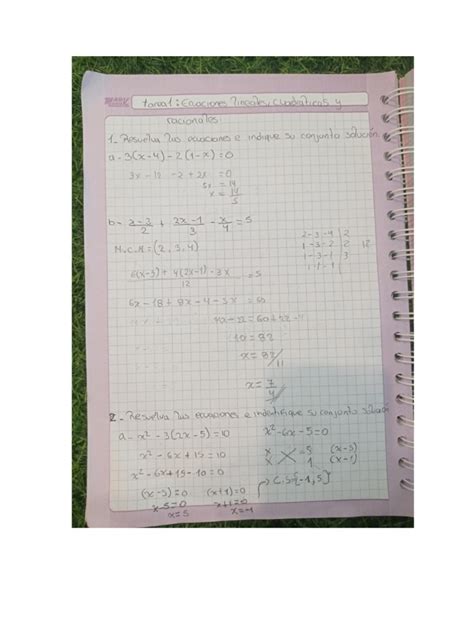 tarea 1: Ecuaciones lineales, cuadraticas y
racionales.
1. Resuelva las ecuaciones e indique su conjunto solución.
a- 3(x-4)-2(1-x)=0
3x-12 -2+2x =0
5x = 14
x = 14/5
b- x-3/2 + 2x-1/3 - x/4 = 5
M.C.M=(2,3,4)
2-3-4 | 2
1-3-2 | 2 12
1-3-1 | 3
1-1-1
6(x-3)+4(2x-1)-3x/12 = 5
6x-18+8x-4-3x = 60
11x-22=60+22
x = 82/11
2- Resuelva las ecuaciones e indentifique su conjunto solución
a- x²-3(2x-5)=10
x²-6x+15=10
x²-6x+15-10=0
(x-5)=0 (x+1)=0
x-5=0 x+1=0
x=5 x=-1
x²-6x-5=0
x -5 (x-5)
x 1 (x-1)
C.S{-1,5}